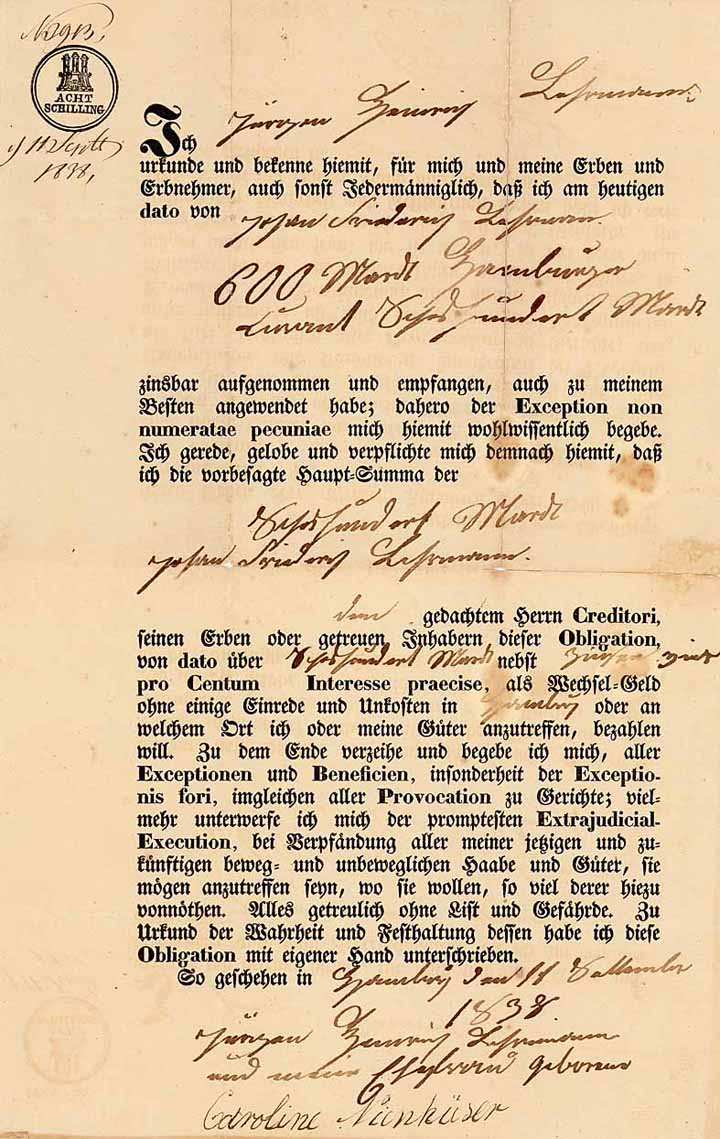 ACHT
SCHILLING
1838,
Jürgen Heinrich Lehrmann
Ich
urkunde und bekenne hiemit, für mich und meine Erben und
Erbnehmer, auch sonst Jedermänniglich, daß ich am heutigen
dato von Johan Friederich Lehrmann.
600 Marck Hamburger
Curant Sechshundert Marck
zinsbar aufgenommen und empfangen, auch zu meinem
Besten angewendet habe; dahero der Exception non
numeratae pecuniae mich hiemit wohlwissentlich begebe.
Ich gerede, gelobe und verpflichte mich demnach hiemit, daß
ich die vorbesagte Haupt-Summa der
Sechshundert Marck
Johan Friederich Lehrmann.
dem gedachtem Herrn Creditori,
seinen Erben oder getreuen Inhabern dieser Obligation,
von dato über Sechshundert Marck nebst
pro Centum Interesse praecise, als Wechsel-Geld
ohne einige Einrede und Unkosten in Hamburg oder an
welchem Ort ich oder meine Güter anzutreffen, bezahlen
will. Zu dem Ende verzeihe und begebe ich mich, aller
Exceptionen und Beneficien, insonderheit der Exceptio-
nis fori, imgleichen aller Provocation zu Gerichte; viel-
mehr unterwerfe ich mich der promptesten Extrajudicial-
Execution, bei Verpfändung aller meiner jetzigen und zu-
künftigen beweg- und unbeweglichen Haabe und Güter, sie
mögen anzutreffen seyn, wo sie wollen, so viel derer hiezu
vonnöthen. Alles getreulich ohne List und Gefährde. Zu
Urkund der Wahrheit und Festhaltung dessen habe ich diese
Obligation mit eigener Hand unterschrieben.
So geschehen in Hamburg den 11 September
1838.
Jürgen Heinrich Lehrmann
und meine Ehefrau geborene
Caroline Nienhüser